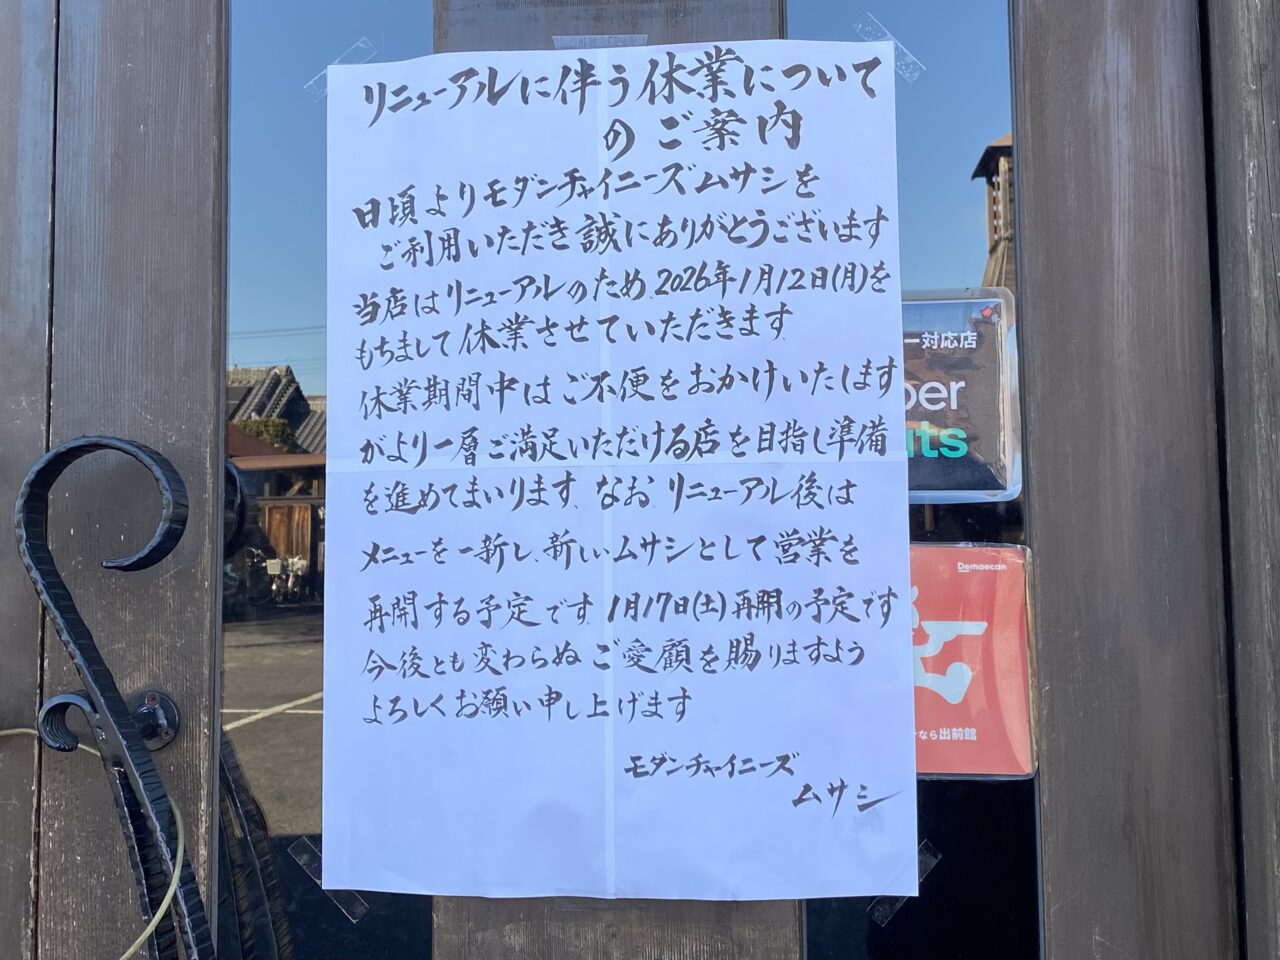 リニューアルに伴う休業について
のご案内
日頃よりモダンチャイニーズムサシを
ご利用いただき誠にありがとうございます
当店はリニューアルのため、2026年1月12日(月)を
もちまして休業させていただきます
休業期間中はご不便をおかけいたします
がより一層ご満足いただける店を目指し準備
を進めてまいります、なお、リニューアル後は
メニューを一新し、新しいムサシとして営業を
再開する予定です 1月17日(土)再開の予定です
今後とも変わらぬご愛顧を賜りますよう
よろしくお願い申し上げます
モダンチャイニーズ
ムサシ
ー対応店
ber
ats
Demaecan
なら出前館